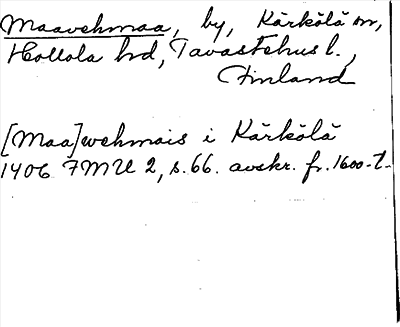 Maavehmaa, by, Kärkölä sn,
Hollola hd, Tavastehus l.,
Finland
[Maa]wehmais i Kärkölä
1406 FMU 2, s. 66. avskr. fr. 1600-t.